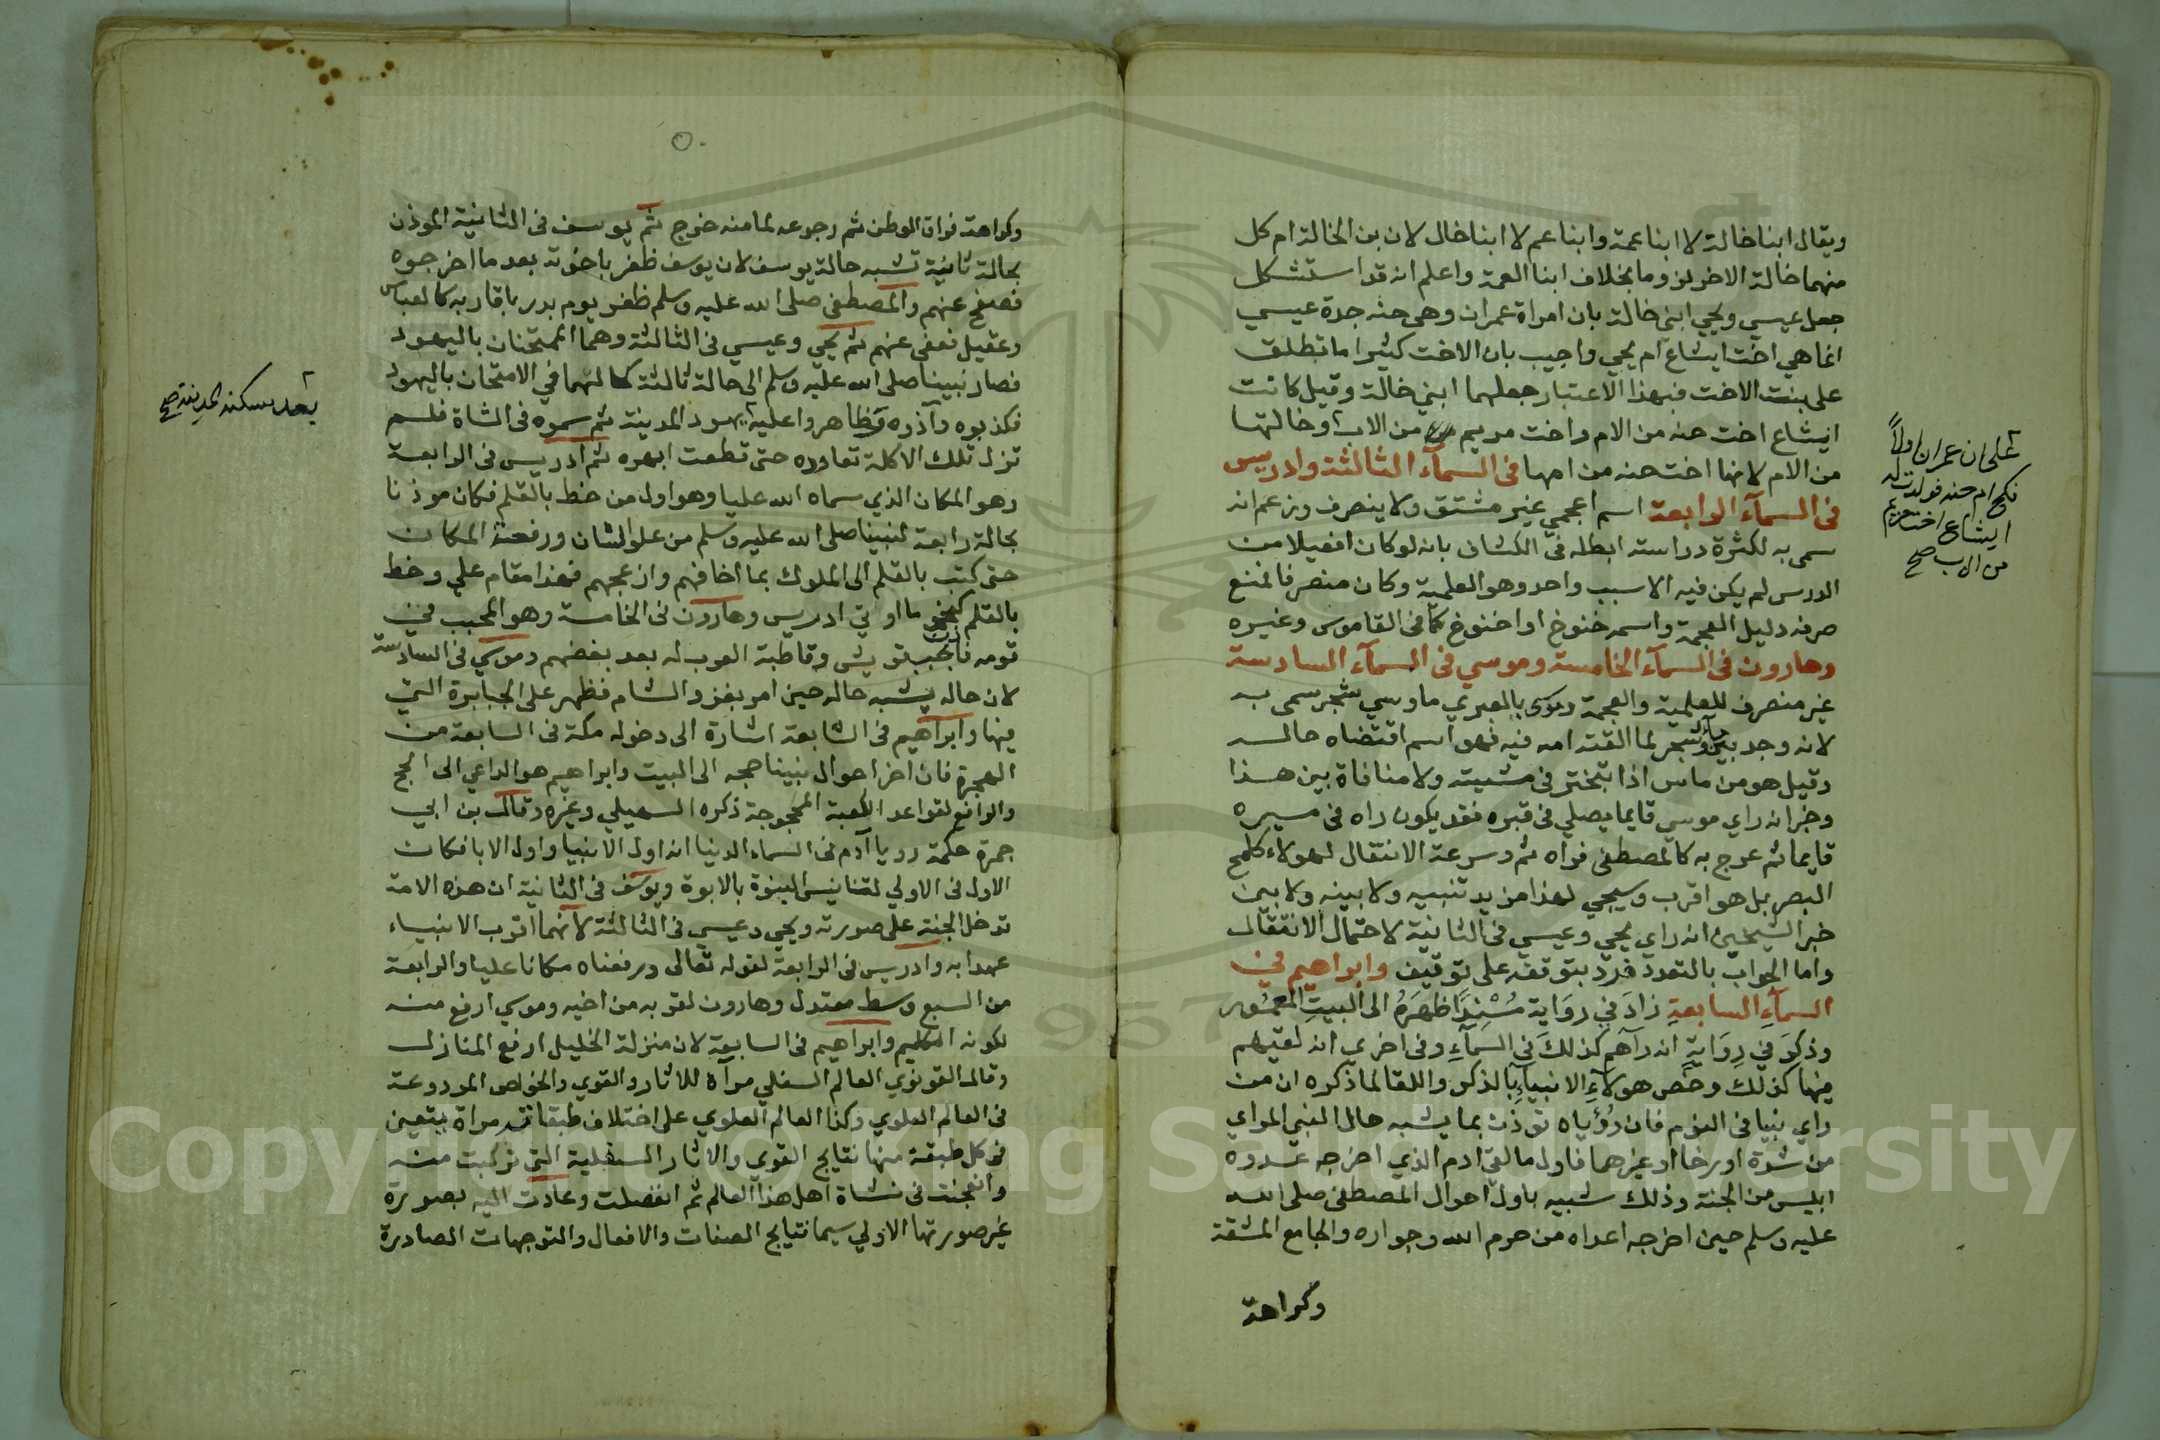 ويقال ابنا خالة لا ابنا عمة وابنا عم لا ابنا خال لان بن الخالة ام كل
منهما خالة الاخر لزوما بخلاف ابنا العمة واعلم انه قد استشكل
جعل عيسي ويحي ابني خالة بان امراة عمران وهي حنه جدة عيسي
انما هي اخت ايشاع ام يحي واجيب بان الاخت كثيرا ما تطلق
على بنت الاخت فبهذا الاعتبار جعلهما ابني خالة وقيل كانت
ايشاع اخت حنه من الام واخت مريم من الاب وخالتها
من الام لانها اخت حنه من امها في السمآء الثالثة وادريس
في السمآء الرابعة اسم اعجمي غير مشتق ولا ينصرف وزعم انه
سمي به لكثرة دراسته ابطله في الكشاف بانه لو كان افعيلا من
الدرس لم يكن فيه الا سبب واحد وهو العلمية وكان منصرفا فمنع
صرفه دليل العجمة واسمه خنوخ او اخنوخ كما في القاموس وغيره
وهارون في السمآء الخامسة وموسي في السمآء السادسة
غير منصرف للعلمية والعجمة وموسى بالعبري ماوسي شجر سمى به
لانه وجد بين مآء وشجر لما القته امه فيه فهو اسم اقتضاه حاله
وقيل هو من ماس اذا تبختر في مشيته ولا منافاة بين هذا
وخبر انه راي موسي قايما يصلي في قبره فقد يكون راه في مسيره
قايما ثم عرج به كالمصطفى فراه ثم وسرعة الانتقال لهولاء كلمح
البصر بل هو اقرب وسيجي لهذا مزيد تنبيه ولا بينه ولا بين
خبر الشيخين انه راي يحي وعيسي في الثانية لاحتمال الانتقال
واما الجواب بالتعدد فرد بتوقفه على توقيف وابراهيم في
السمآءِ السابعةِ زادَ في روَاية مُسْنِدًا ظهرَهُ الى البيتِ المعمُور
وذكرَ في رِوَايةٍ انه رآهم كذلكَ في السمآءِ وفى اخرى انه لقيهم
فيها كذلك وخُصّ هولآءِ الانبياءِ بالذكر واللقا لما ذكره ان من
راي نبيا في النوم فان رُؤياه توذن بما يشبه حال النبي المراي
من شدة او رخا او غيرهما فاول ما لقى ادم الذي اخرجه عدوه
ابليس من الجنة وذلك شبيه باول احوال المصطفى صلى الله
عليه وسلم حين اخرجه اعداه من حرم الله وجواره والجامع المشقة
وكراهة
على ان عمران اولاً
نكح ام حنه فولدت له
ايشاع اخت مريم
من الاب صح
وكراهة فراق الوطن ثم رجوعه لما منه خرج ثم يوسف في الثانية الموذن
بحالة ثانية تشبه حالة يوسف لان يوسف ظفر باخوته بعد ما اخرجوه
فصفح عنهم والمصطفى صلى الله عليه وسلم ظفر يوم بدر باقاربه كالعباس
وعقيل فعفى عنهم ثم يحي وعيسي في الثالثة وهما الممتحنان باليهود
فصار نبينا صلى الله عليه وسلم الى حالة ثالثة كحالتهما في الامتحان باليهود
فكذبوه وآذوه وتظاهروا عليه يهود المدينة ثم سموه في الشاة فلم
تزل تلك الاكلة تعاوده حتى قطعت ابهره ثم ادريس في الرابعة
وهو المكان الذي سماه الله عليا وهو اول من خط بالقلم فكان موذنا
بحالة رابعة لنبينا صلى الله عليه وسلم من علو الشان ورفعة المكان
حتى كتب بالقلم الى الملوك بما اخافهم وازعجهم فهذا مقام علي وخط
بالقلم كنحو ما اوتي ادريس وهارون في الخامسة وهو المحبب في
قومه فاذن بحب قريش وقاطبة العرب له بعد بغضهم وموسي في السادسة
لان حاله يشبه حاله حين امر بغزو الشام فظهر على الجبابرة التي
فيها وابراهيم في السابعة اشارة الى دخوله مكة في السابعة من
الهجرة فان اخر احوال نبينا حجه الى البيت وابراهيم هو الداعي الى الحج
والرافع لقواعد الكعبة المحجوجة ذكره السهيلي وغيره وقال بن ابي
جمرة حكمة رويا آدم في السماء الدنيا انه اول الانبيا واول الابا فكان
الاول في الاولي لتانيس النبوة بالابوة ويوسف في الثانية ان هذه الامة
تدخل الجنة على صورته ويحي وعيسي في الثالثة لانهما اقرب الانبياء
عهدا به وادريس في الرابعة لقوله تعالى ورفعناه مكانا عليا والرابعة
من السبع وسط معتدل وهارون لقربه من اخيه وموسي ارفع منه
لكونه الكليم وابراهيم في السابعة لان منزلة الخليل ارفع المنازل
وقال القونوي العالم السفلي مرآة للاثار والقوي والخواص المودوعة
في العالم العلوي وكذا العالم العلوي على اختلاف طبقاته مراة يتعين
في كل طبقة منها نتايج القوي والاثار السفلية التي تركبت منه
وانعجنت في نشاة اهل هذا العالم ثم انفصلت وعادت اليه بصورة
غير صورتها الاولي سيما نتايج الصفات والافعال والتوجهات الصادرة
بعد سكنه المدينة صح
1957
Copyright © King Saud University